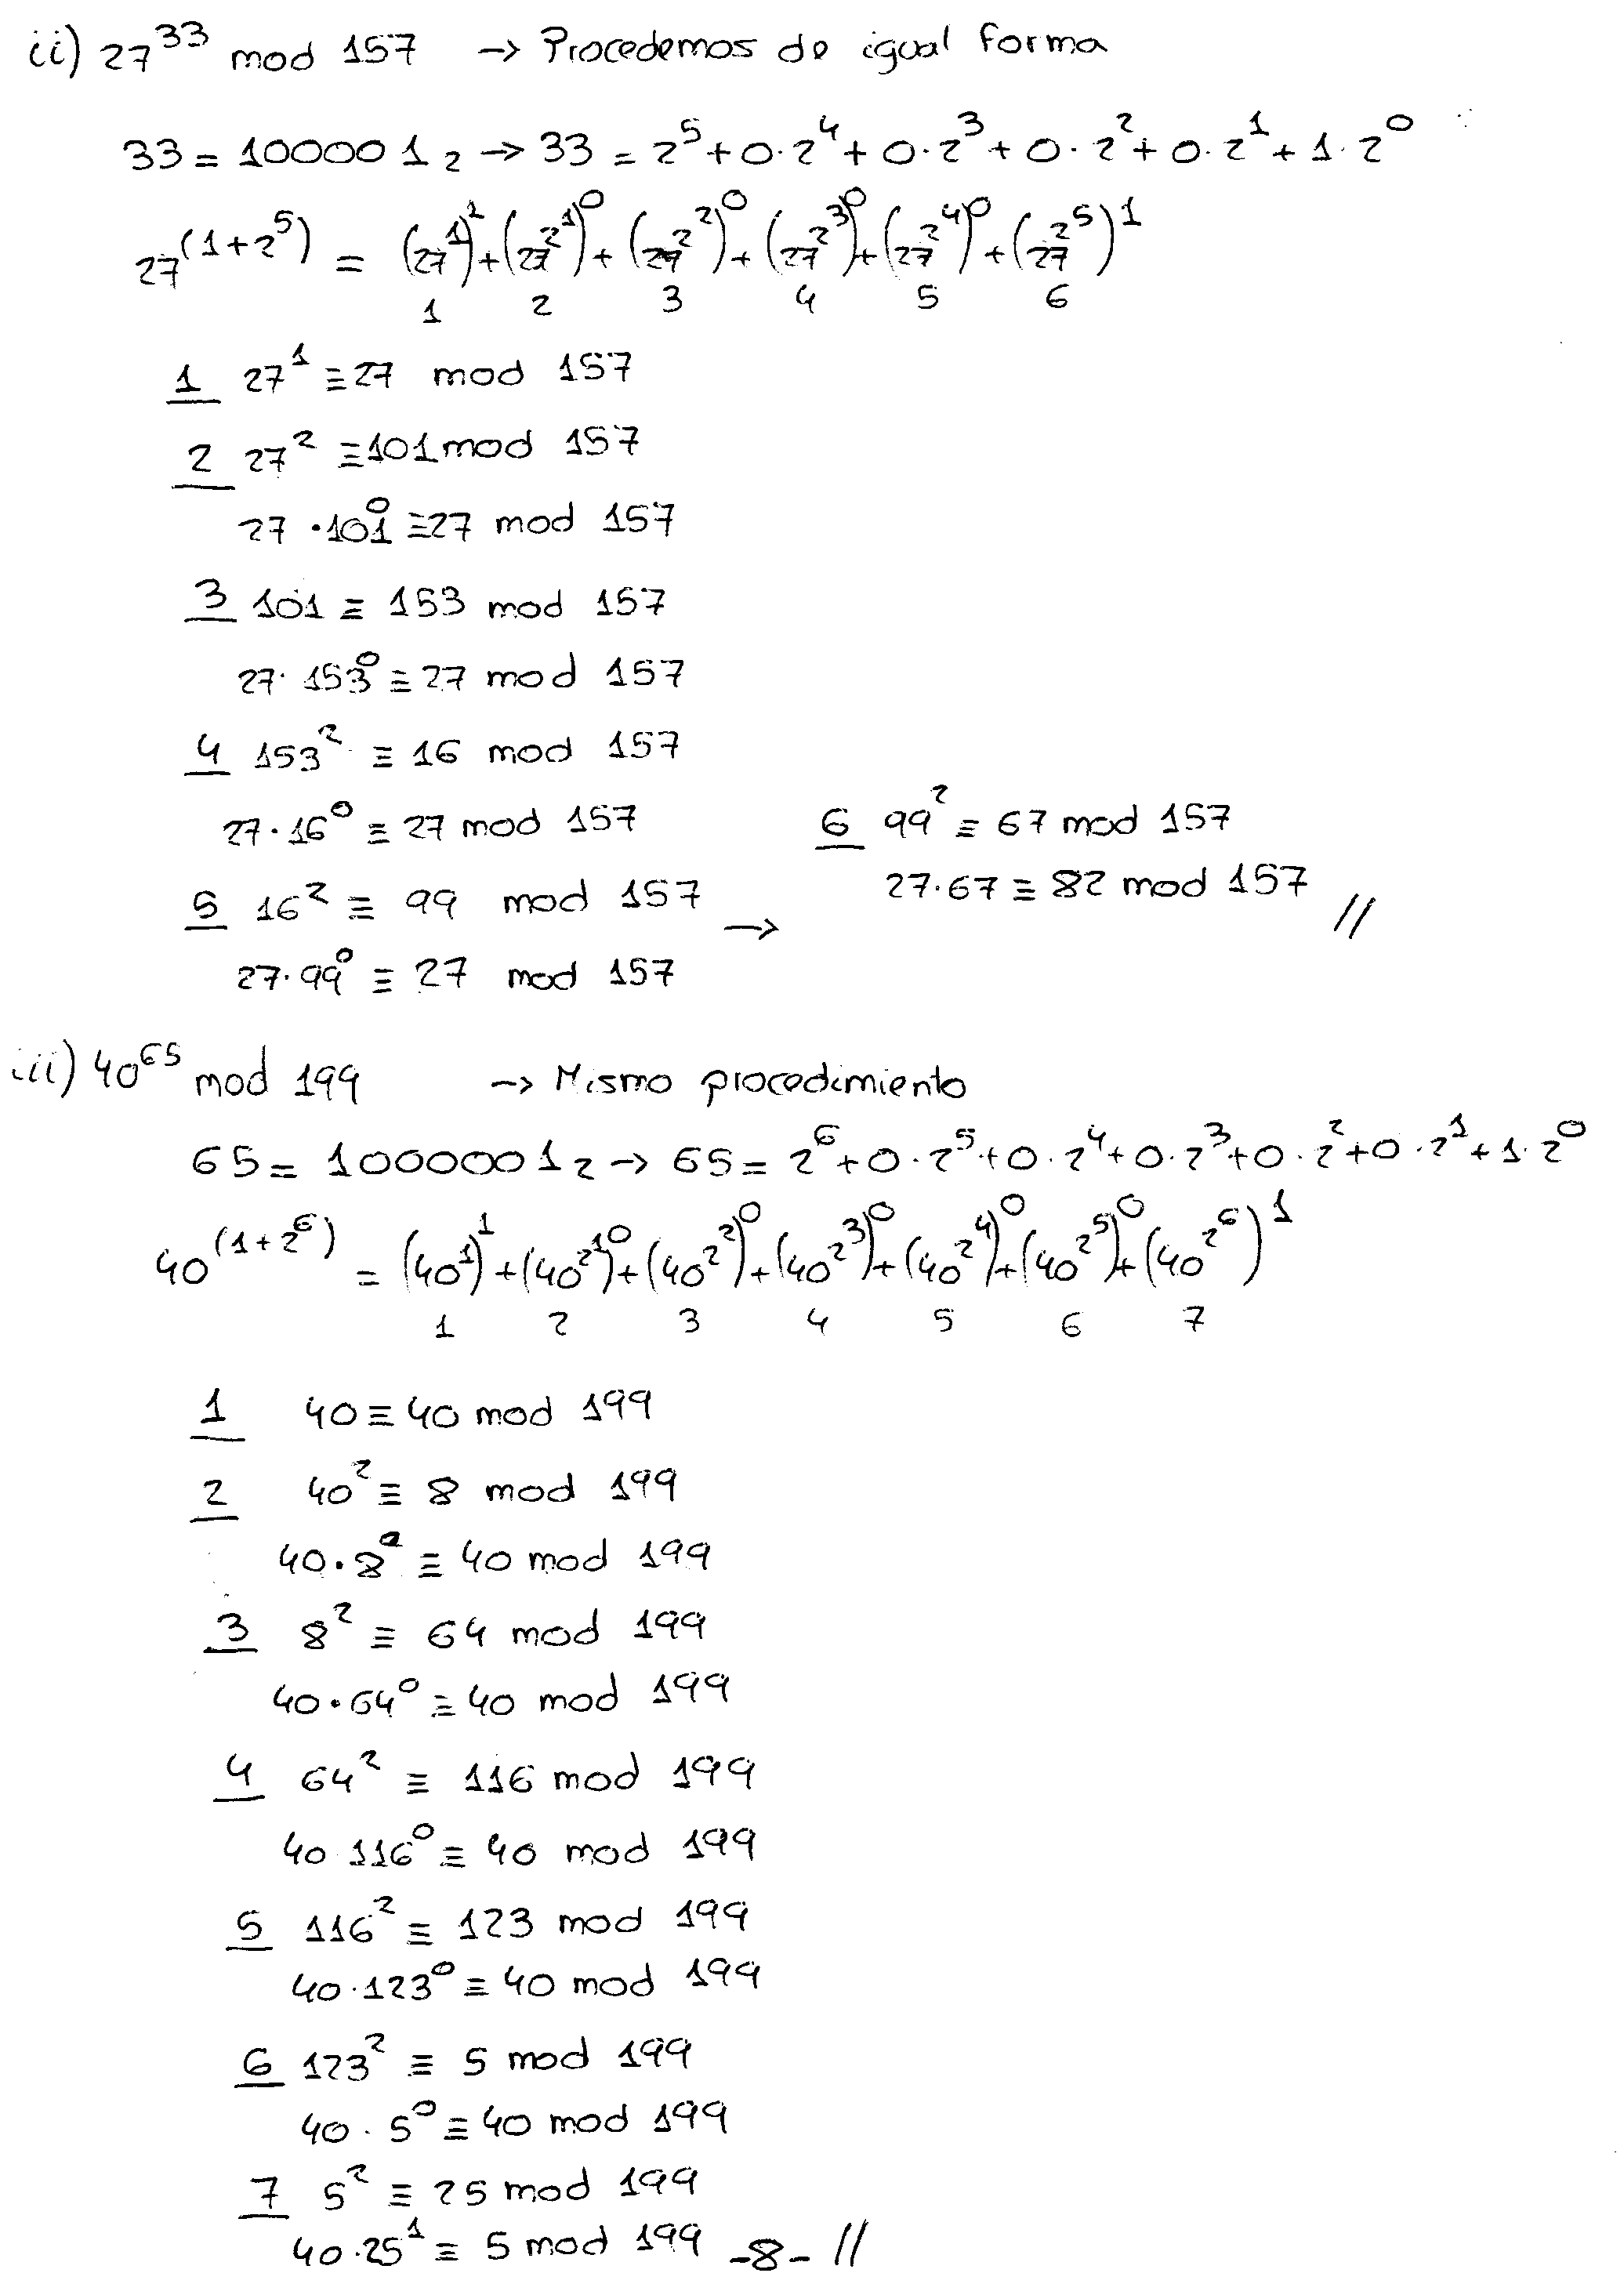 ii) 27^33 mod 157 → Procedemos de igual forma
33 = 100001₂ → 33 = 2^5 + 0·2^4 + 0·2^3 + 0·2^2 + 0·2^1 + 1·2^0
27^(1+2^5) = (27^1)^1 + (27^2^1)^0 + (27^2^2)^0 + (27^2^3)^0 + (27^2^4)^0 + (27^2^5)^1
1 2 3 4 5 6
1 27^1 ≡ 27 mod 157
2 27^2 ≡ 101 mod 157
27·101^0 ≡ 27 mod 157
3 101 ≡ 153 mod 157
27·153^0 ≡ 27 mod 157
4 153^2 ≡ 16 mod 157
27·16^0 ≡ 27 mod 157
5 16^2 ≡ 99 mod 157 →
27·99^0 ≡ 27 mod 157
6 99^2 ≡ 67 mod 157
27·67 ≡ 82 mod 157 //
iii) 40^65 mod 199 → Mismo procedimiento
65 = 1000001₂ → 65 = 2^6 + 0·2^5 + 0·2^4 + 0·2^3 + 0·2^2 + 0·2^1 + 1·2^0
40^(1+2^6) = (40^1)^1 + (40^2^1)^0 + (40^2^2)^0 + (40^2^3)^0 + (40^2^4)^0 + (40^2^5)^0 + (40^2^6)^1
1 2 3 4 5 6 7
1 40 ≡ 40 mod 199
2 40^2 ≡ 8 mod 199
40·8^0 ≡ 40 mod 199
3 8^2 ≡ 64 mod 199
40·64^0 ≡ 40 mod 199
4 64^2 ≡ 116 mod 199
40·116^0 ≡ 40 mod 199
5 116^2 ≡ 123 mod 199
40·123^0 ≡ 40 mod 199
6 123^2 ≡ 5 mod 199
40·5^0 ≡ 40 mod 199
7 5^2 ≡ 25 mod 199
40·25^1 ≡ 5 mod 199 -8- //